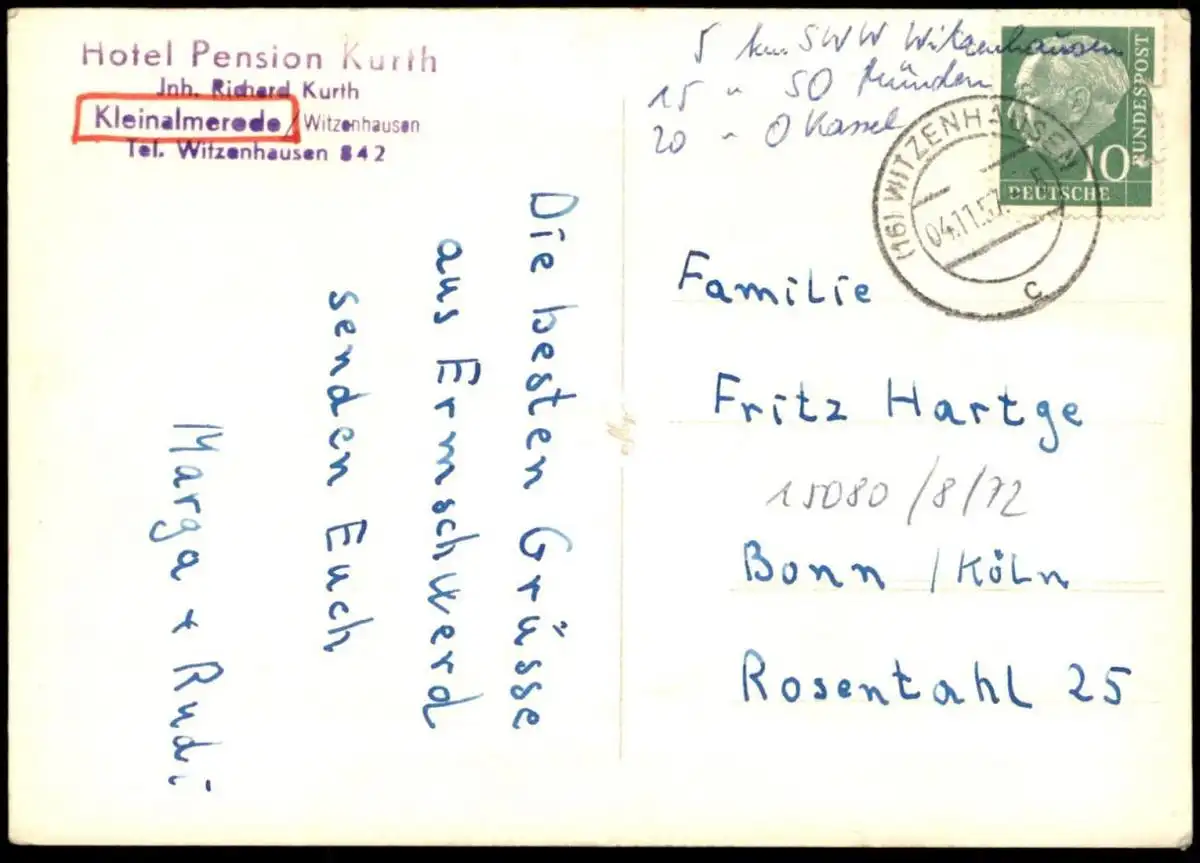 Hotel Pension Kurth
Jnh. Richard Kurth
Kleinalmerode/Witzenhausen
Tel. Witzenhausen 842
5 km SWW Witzenhausen
15 " SO Münden
20 " O Kassel
DEUTSCHE
BUNDESPOST
10
(16) WITZENHAUSEN
04.11.57.
c
Die besten Grüsse
aus Ermschwerd
senden Euch
Marga + Rudi
Familie
Fritz Hartge
15080/8/72
Bonn /Köln
Rosentahl 25